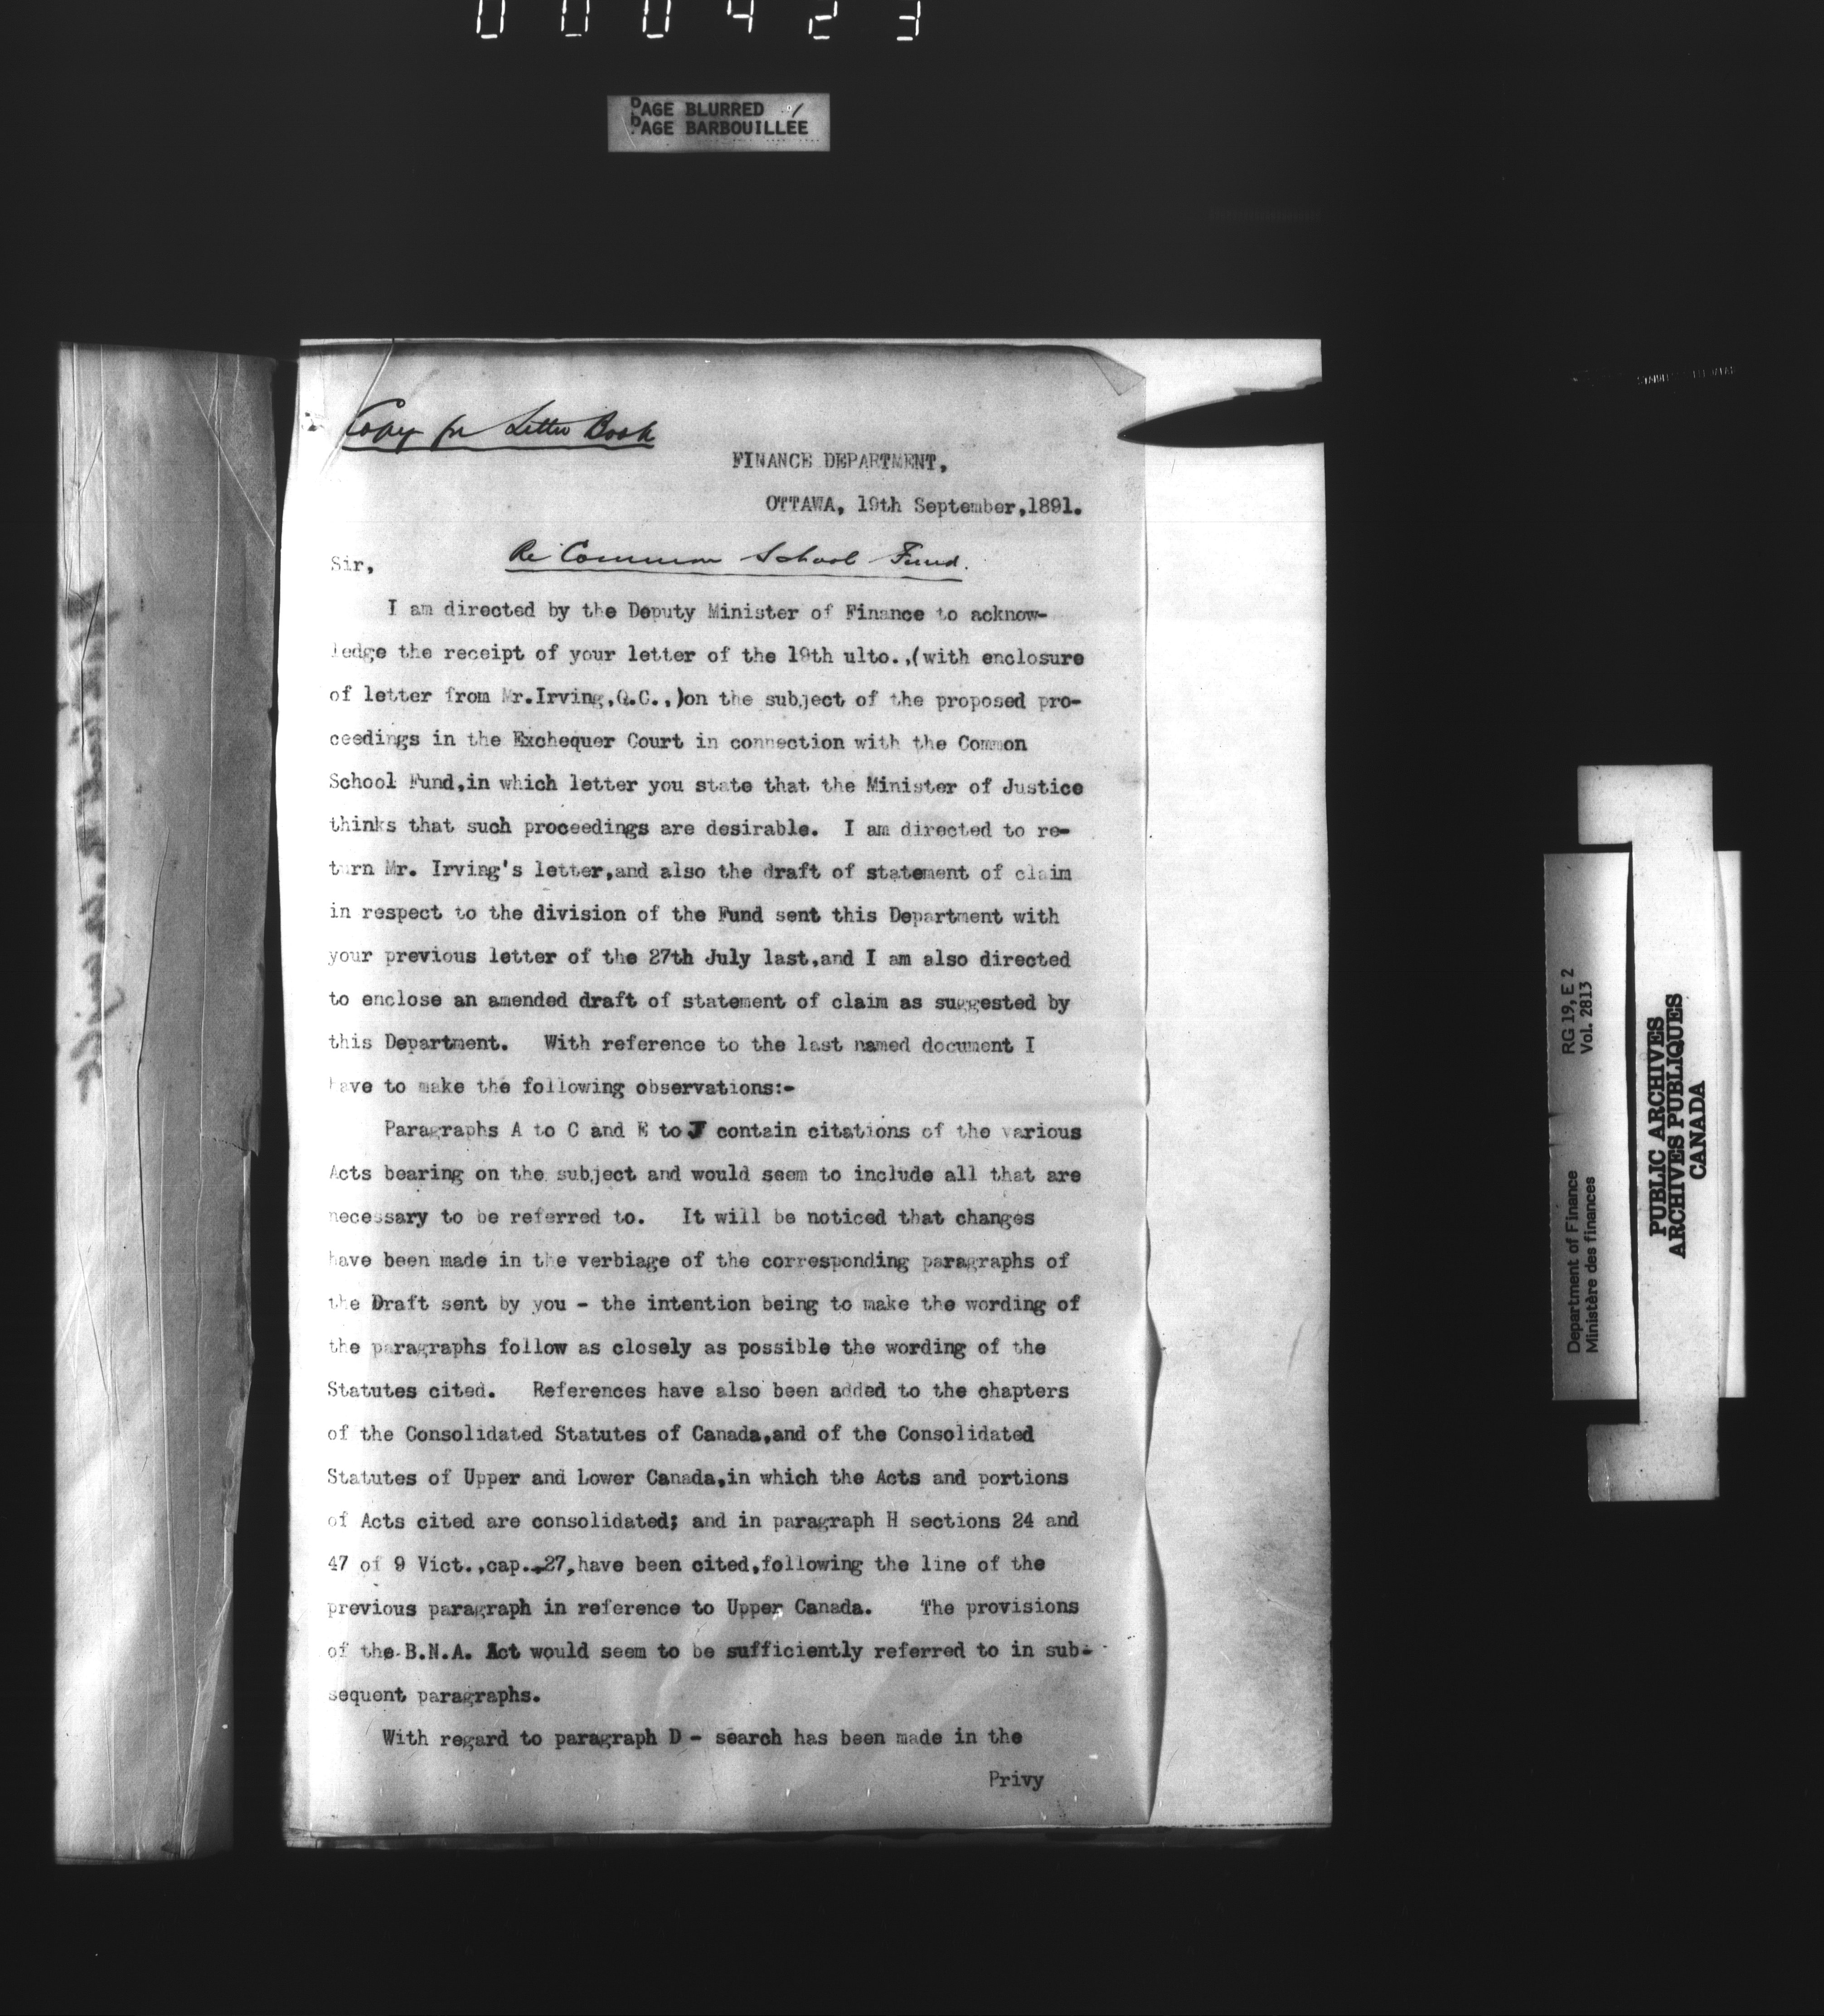 000423
PAGE BLURRED
PAGE BARBOUILLÉE
Copy for Letter Book
FINANCE DEPARTMENT,
OTTAWA, 19th September,1891.
Re Common School Fund.
Sir,
I am directed by the Deputy Minister of Finance to acknow-
ledge the receipt of your letter of the 19th ulto.,(with enclosure
of letter from Mr.Irving,Q.C.,)on the subject of the proposed pro-
ceedings in the Exchequer Court in connection with the Common
School Fund,in which letter you state that the Minister of Justice
thinks that such proceedings are desirable. I am directed to re-
turn Mr. Irving's letter,and also the draft of statement of claim
in respect to the division of the Fund sent this Department with
your previous letter of the 27th July last,and I am also directed
to enclose an amended draft of statement of claim as suggested by
this Department. With reference to the last named document I
have to make the following observations:-
Paragraphs A to C and E to J contain citations of the various
Acts bearing on the subject and would seem to include all that are
necessary to be referred to. It will be noticed that changes
have been made in the verbiage of the corresponding paragraphs of
the Draft sent by you - the intention being to make the wording of
the paragraphs follow as closely as possible the wording of the
Statutes cited. References have also been added to the chapters
of the Consolidated Statutes of Canada,and of the Consolidated
Statutes of Upper and Lower Canada,in which the Acts and portions
of Acts cited are consolidated; and in paragraph H sections 24 and
47 of 9 Vict.,cap.,27,have been cited,following the line of the
previous paragraph in reference to Upper Canada. The provisions
of the B.N.A. Act would seem to be sufficiently referred to in sub-
sequent paragraphs.
With regard to paragraph D - search has been made in the
Privy
Department of Finance RG 19, E 2
Ministère des finances Vol. 2813
PUBLIC ARCHIVES
ARCHIVES PUBLIQUES
CANADA